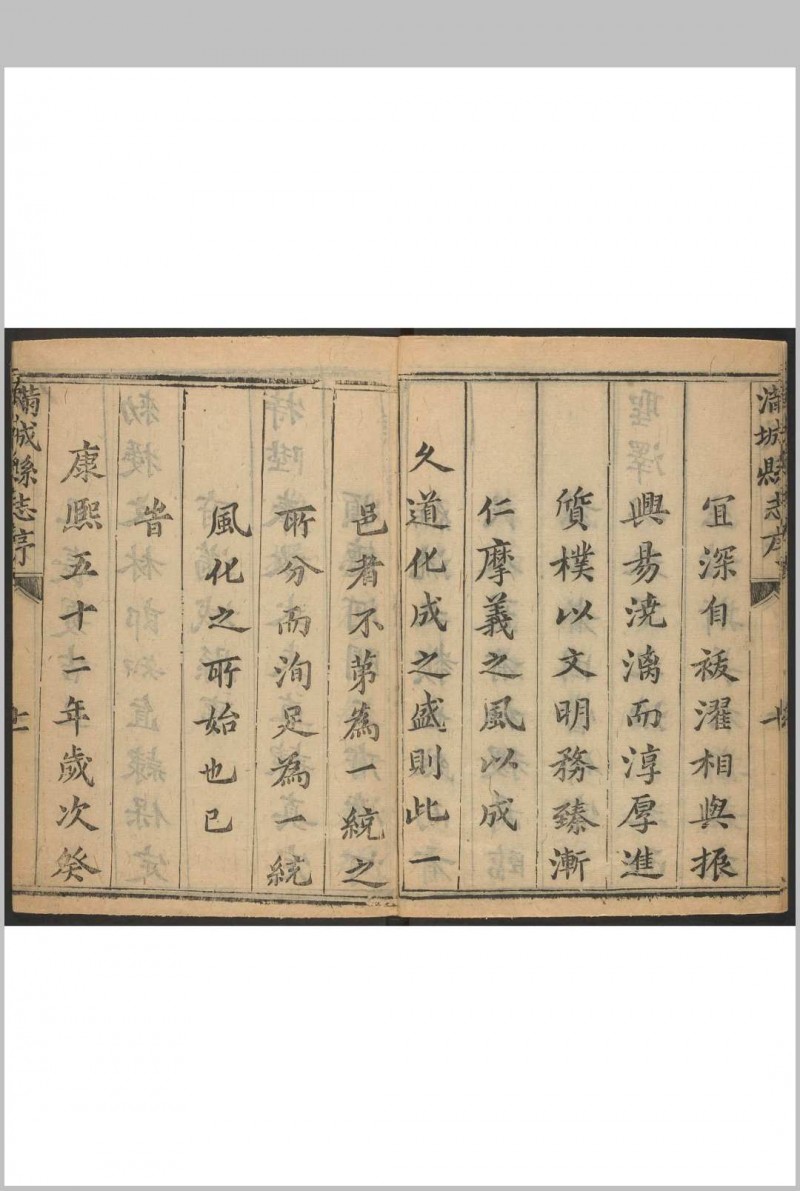 滿城縣志序
宜深自祓濯相與振
興易澆漓而淳厚進
質樸以文明務臻漸
仁摩義之風以成
久道化成之盛則此一
邑者不第為一統之
所分而洵足為一統
風化之所始也已
旹
康熙五十二年歲次癸
滿城縣志序